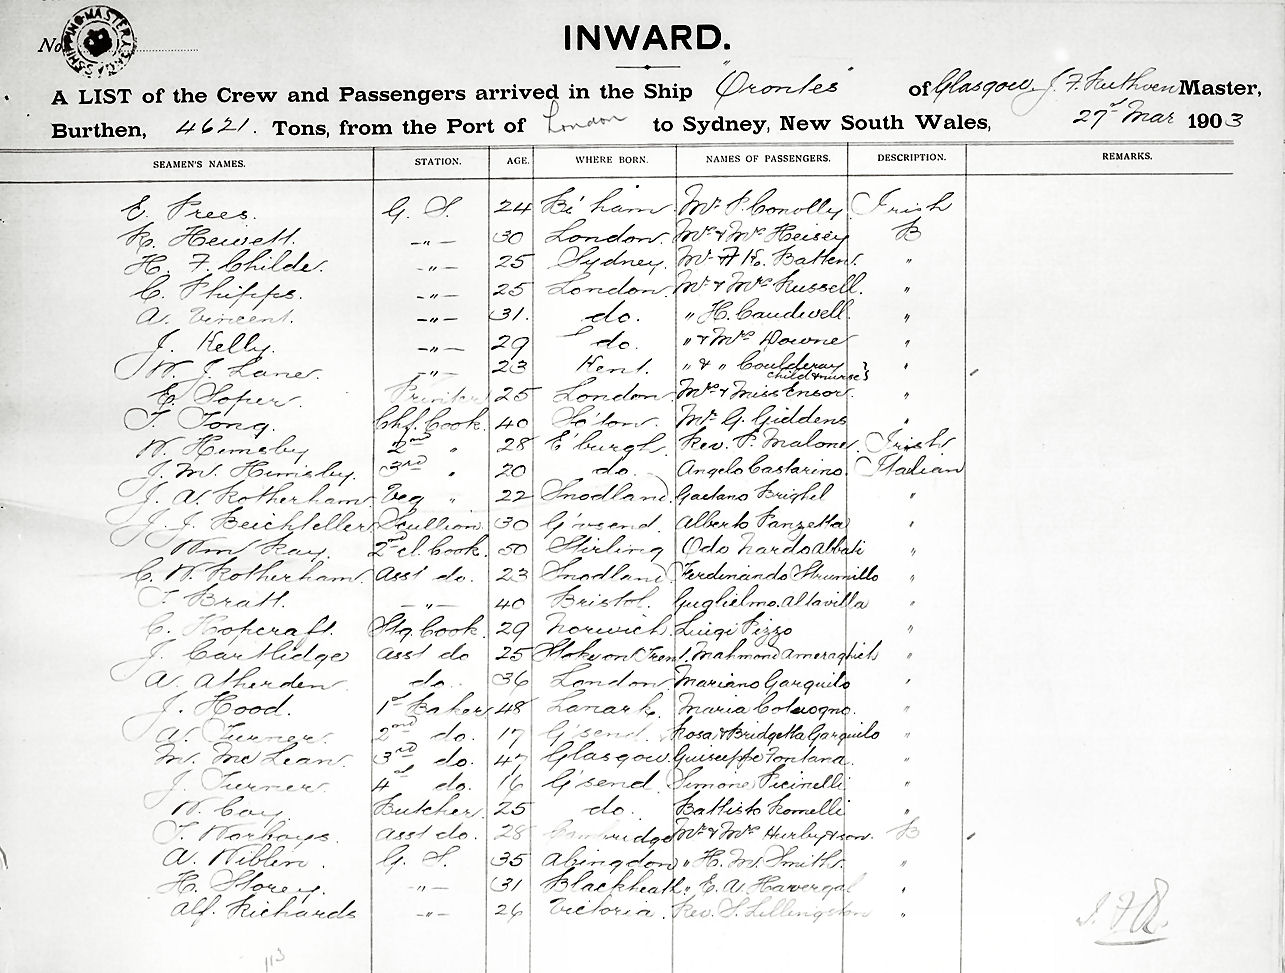 No
SHIPPING MASTER
INWARD.
A LIST of the Crew and Passengers arrived in the Ship "Orontes" of Glasgow, J. F. Ruthven Master,
Burthen, 4621. Tons, from the Port of London to Sydney, New South Wales, 27 Mar 1903
SEAMEN'S NAMES. STATION. AGE. WHERE BORN. NAMES OF PASSENGERS. DESCRIPTION. REMARKS.
E. Prees. G. S. 24 B'ham. Mr P. Conolly. Irish
R. Hewett. -"- 30 London. Mr & Mrs Heisey B
H. F. Childe. -"- 25 Sydney. Mr A K. Batten. "
C. Phipps. -"- 25 London. Mr & Mrs Russell. "
A. Vincent. -"- 31. do. " H. Caudwell. "
J. Kelly. -"- 29 do. " & Mrs Downe "
W. J. Lane. -"- 23 Kent. " & " Coulderay child & nurse } "
E. Soper. Printer 25 London. Mrs & Miss Ensor. "
T. Tong. Chf. Cook. 40 So'ton. Mr G. Giddens. "
W. Hemsby 2nd " 28 E'burgh. Rev. P. Malone. Irish.
J. M. Hemsby. 3rd " 20 do. Angelo Castarino. Italian
J. A. Rotherham Veg " 22 Snodland. Gaetano "
J. J. Scullion. 30 G'vsend. Alberto Panzetta "
Wm Kay. 2nd cl. Cook. 50 Stirling Odo Nardo Abbati "
C. W. Rotherham. Asst do. 23 Snodland. Ferdinando Strumillo "
T. Bratt. -"- 40 Bristol. Guglielmo Altavilla "
C. Hopcraft. Stg. Cook. 29 Norwich. Luigi Pizzo "
J. Cartlidge Asst do 25 Stoke on Trent. Mahmond "
A. Atherden. do. 36 London. Mariano Garguilo "
J. Hood. 1st Baker 48 Lanark. Maria "
A. Turner. 2nd do. 17 G'send. Rosa & Bridgetta Garguilo "
M. McLean. 3rd do. 47 Glasgow. Guiseppe Fontana. "
J. Turner. 4 do. 16 G'send. Simone Picinelli "
W. Coy. Butcher. 25 do. Battisto Romelli "
T. Worboys. Asst do. 28 Cambridge Mr & Mrs Hurley & son. B
A. Niblen. G. S. 35 Abingdon " H. W. Smith. "
H. Storey. -"- 31 Blackheath " E. A. Havergal "
Alf. Richards -"- 26 Victoria. Rev. S. Lillingston "
J. F. R.
113